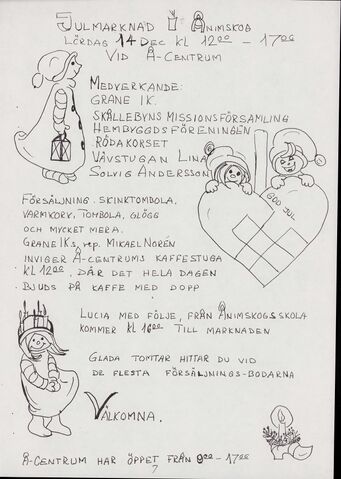 JULMARKNAD I ÅNIMSKOG
LÖRDAG 14 DEC KL 1200 - 1700
VID Å-CENTRUM
MEDVERKANDE:
GRANE IK.
SKÅLLEBYNS MISSIONSFÖRSAMLING
HEMBYGGDSFÖRENINGEN
RÖDAKORSET
VÄVSTUGAN LINA
SOLVIG ANDERSSON
GOD JUL
FÖRSÄLJNING. SKINKTOMBOLA.
VARMKORV, TOMBOLA, GLÖGG
OCH MYCKET MERA.
GRANE IKs, rep. MIKAEL NORÉN
INVIGER Å-CENTRUMS KAFFESTUGA
KL 1200. DÄR DET HELA DAGEN
BJUDS PÅ KAFFE MED DOPP
LUCIA MED FÖLJE, FRÅN ÅNIMSKOGS SKOLA
KOMMER KL 1600 TILL MARKNADEN
GLADA TOMTAR HITTAR DU VID
DE FLESTA FÖRSÄLJNINGS-BODARNA
VÄLKOMNA.
Å-CENTRUM HAR ÖPPET FRÅN 900 - 1700
7